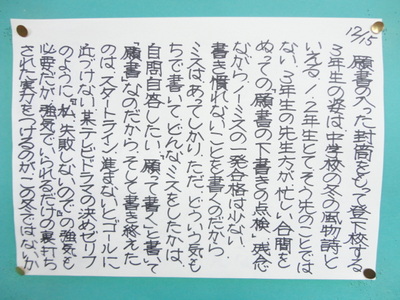 12/15
願書の入った封筒をもって登下校する
3年生の姿は、中学校の冬の風物詩と
いえる。1・2年生とてそう先のことでは
ない。3年生の先生方が忙しい合間を
ぬっての「願書の下書きの点検、残念
ながら、ノーミスの一発合格は少ない。
書き慣れないことを書くのだから
ミスはあってしかり。ただ、どういう気も
ちで書いて、どんなミスをしたかは、
自問自答したい。「願って書く」と書いて
「願書」なのだから。そして書き終えた
のは、スタートライン。進まないとゴールに
近づけない。某テレビドラマの決めゼリフ
のように、"私、失敗しないので。"強気も
必要だが、強気でいられるだけの裏打ち
された実力をつけるのが、この冬ではないか